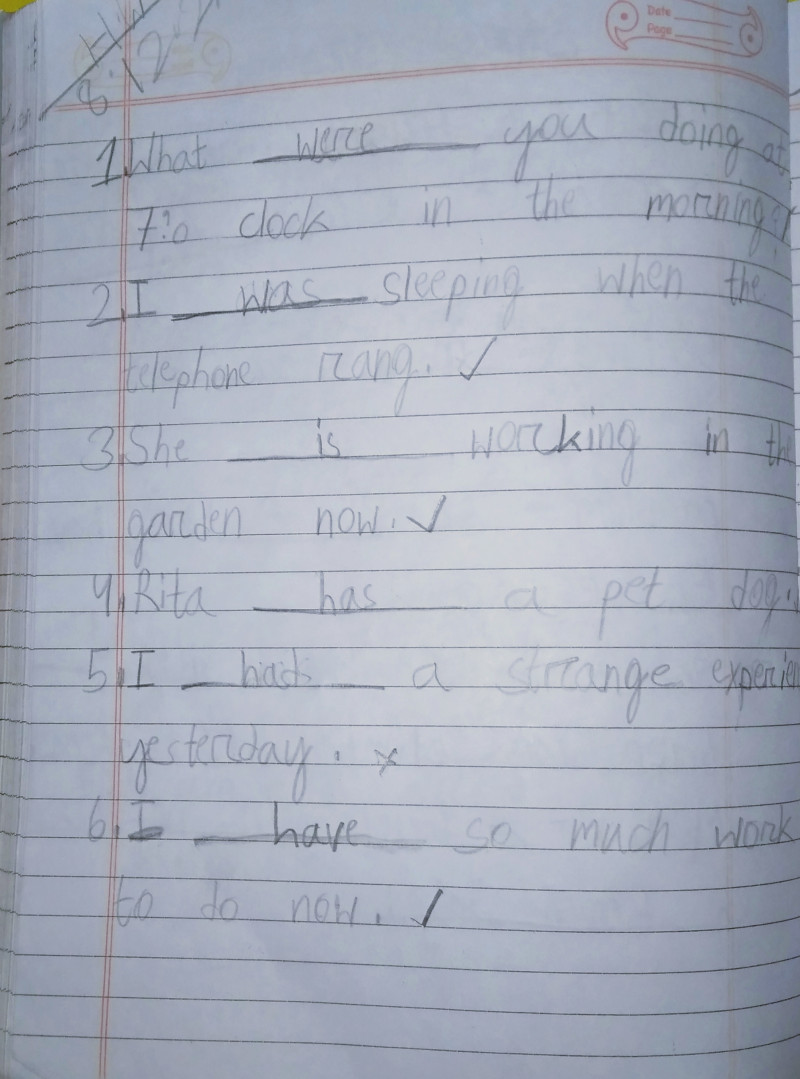 Date
Page
8.12
1. What were you doing at
7:0 clock in the morning?
2. I was sleeping when the
telephone rang. ✓
3. She is working in the
garden now. ✓
4. Rita has a pet dog.
5. I a strange experien
yesterday. ×
6. I have so much work
to do now. ✓